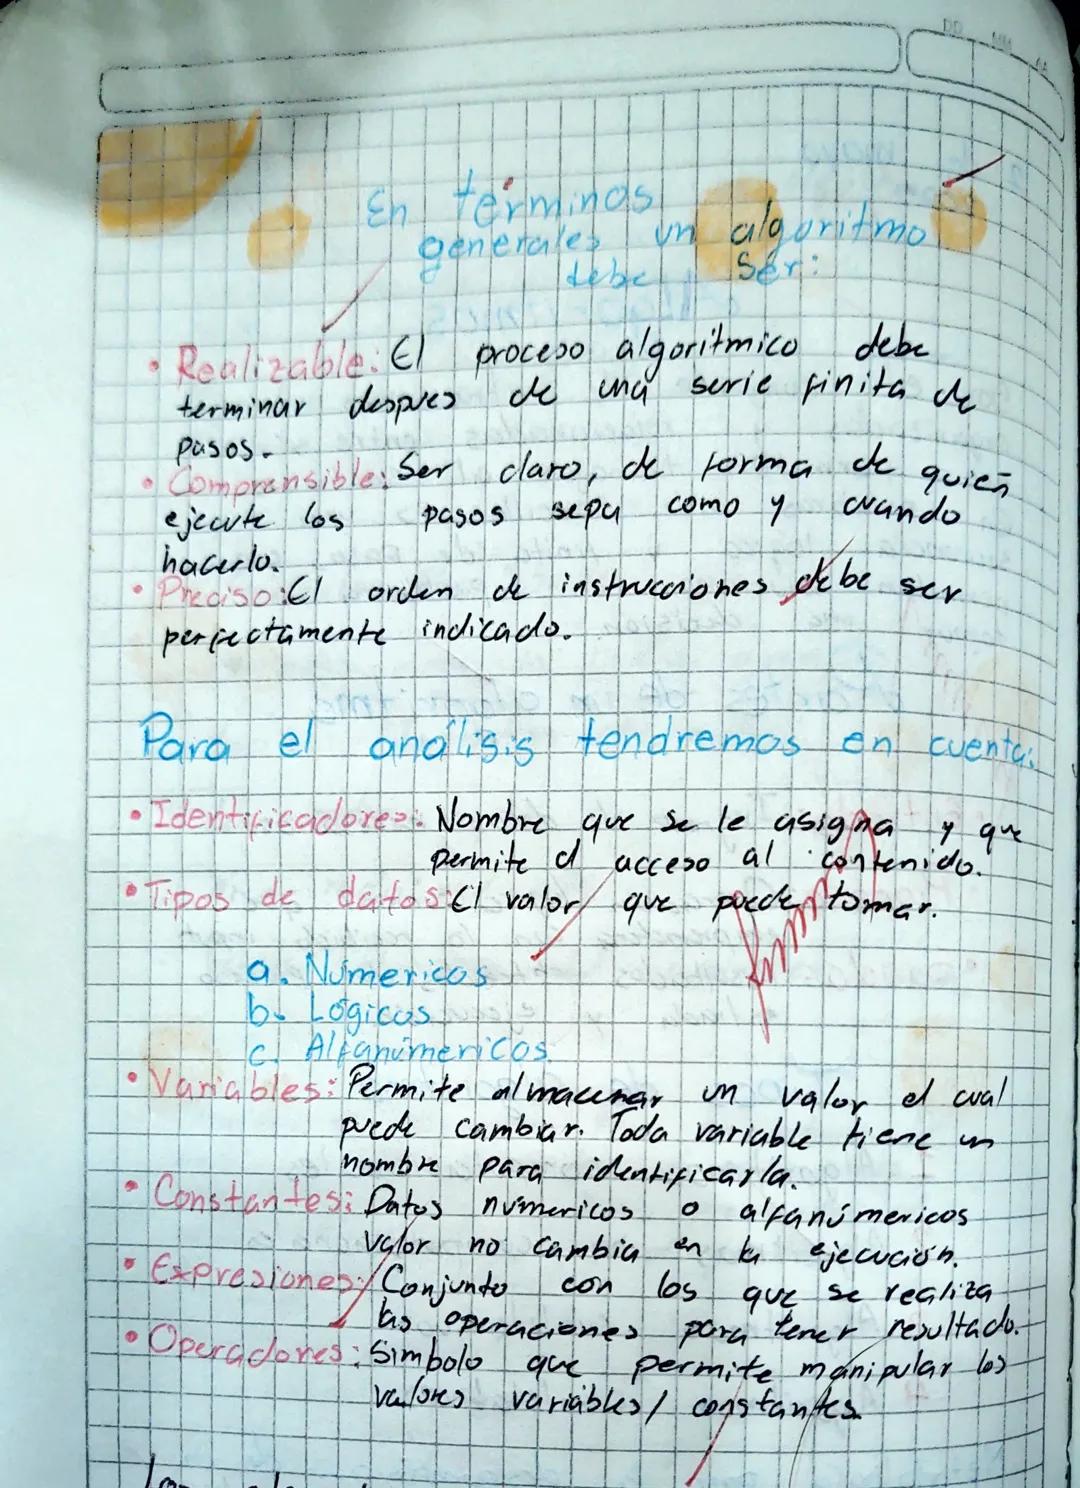 En términos
generales un algoritmo
debe ser:
• Realizable: El proceso algoritmico debe
terminar despues de una serie finita de
pasos.
• Comprensible: Ser claro, de forma de quien
ejecute los pasos sepa como y cuando
hacerlo.
• Preciso: El orden de instrucciones debe ser
perfectamente indicado.
Para el análisis tendremos en cuenta:
• Identificadores: Nombre que se le asigna y que
permite el acceso al contenido.
• Tipos de datos: El valor que puede tomar.
a. Númericos
b. Lógicos
c. Alfanúmericos
• Variables: Permite almacenar un valor el cual
puede cambiar. Toda variable tiene un
nombre para identificarla.
• Constantes: Datos númericos o alfanúmericos
valor no cambia en la ejecución.
• Expresiones: Conjunto con los que se realiza
las operaciones para tener resultado.
• Operadores: Simbolo que permite manipular los
valores variables/ constantes.